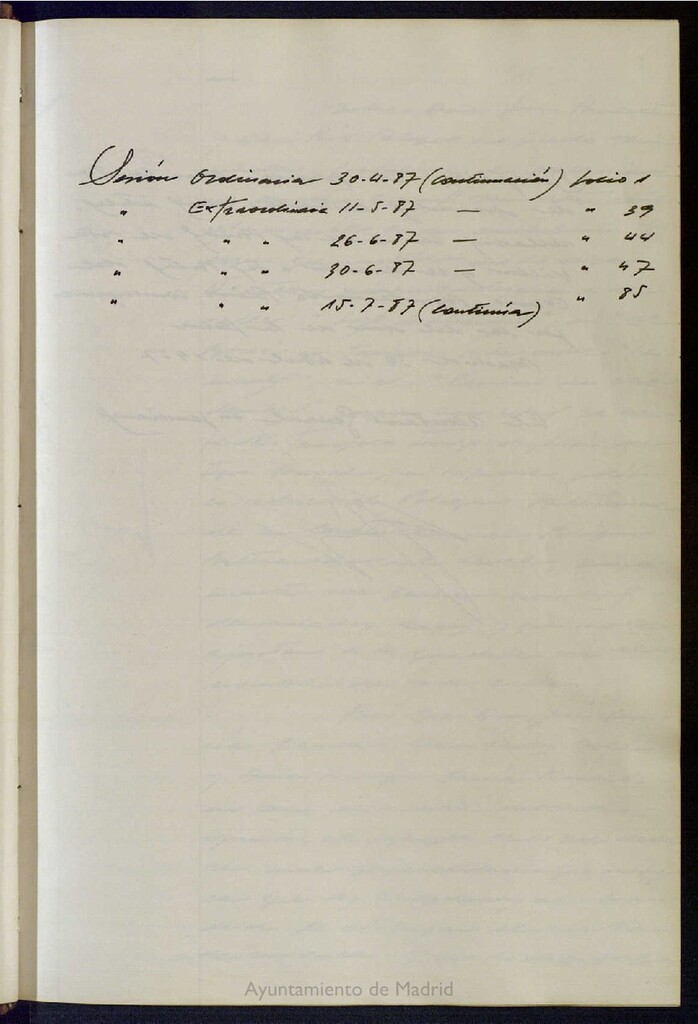 Sesión Ordinaria 30-4-87 (continuación) folio 1
" Extraordinaria 11-5-87 — " 39
" " " 26-6-87 — " 44
" " " 30-6-87 — " 47
" " " 15-7-87 (continúa) " 85
Ayuntamiento de Madrid